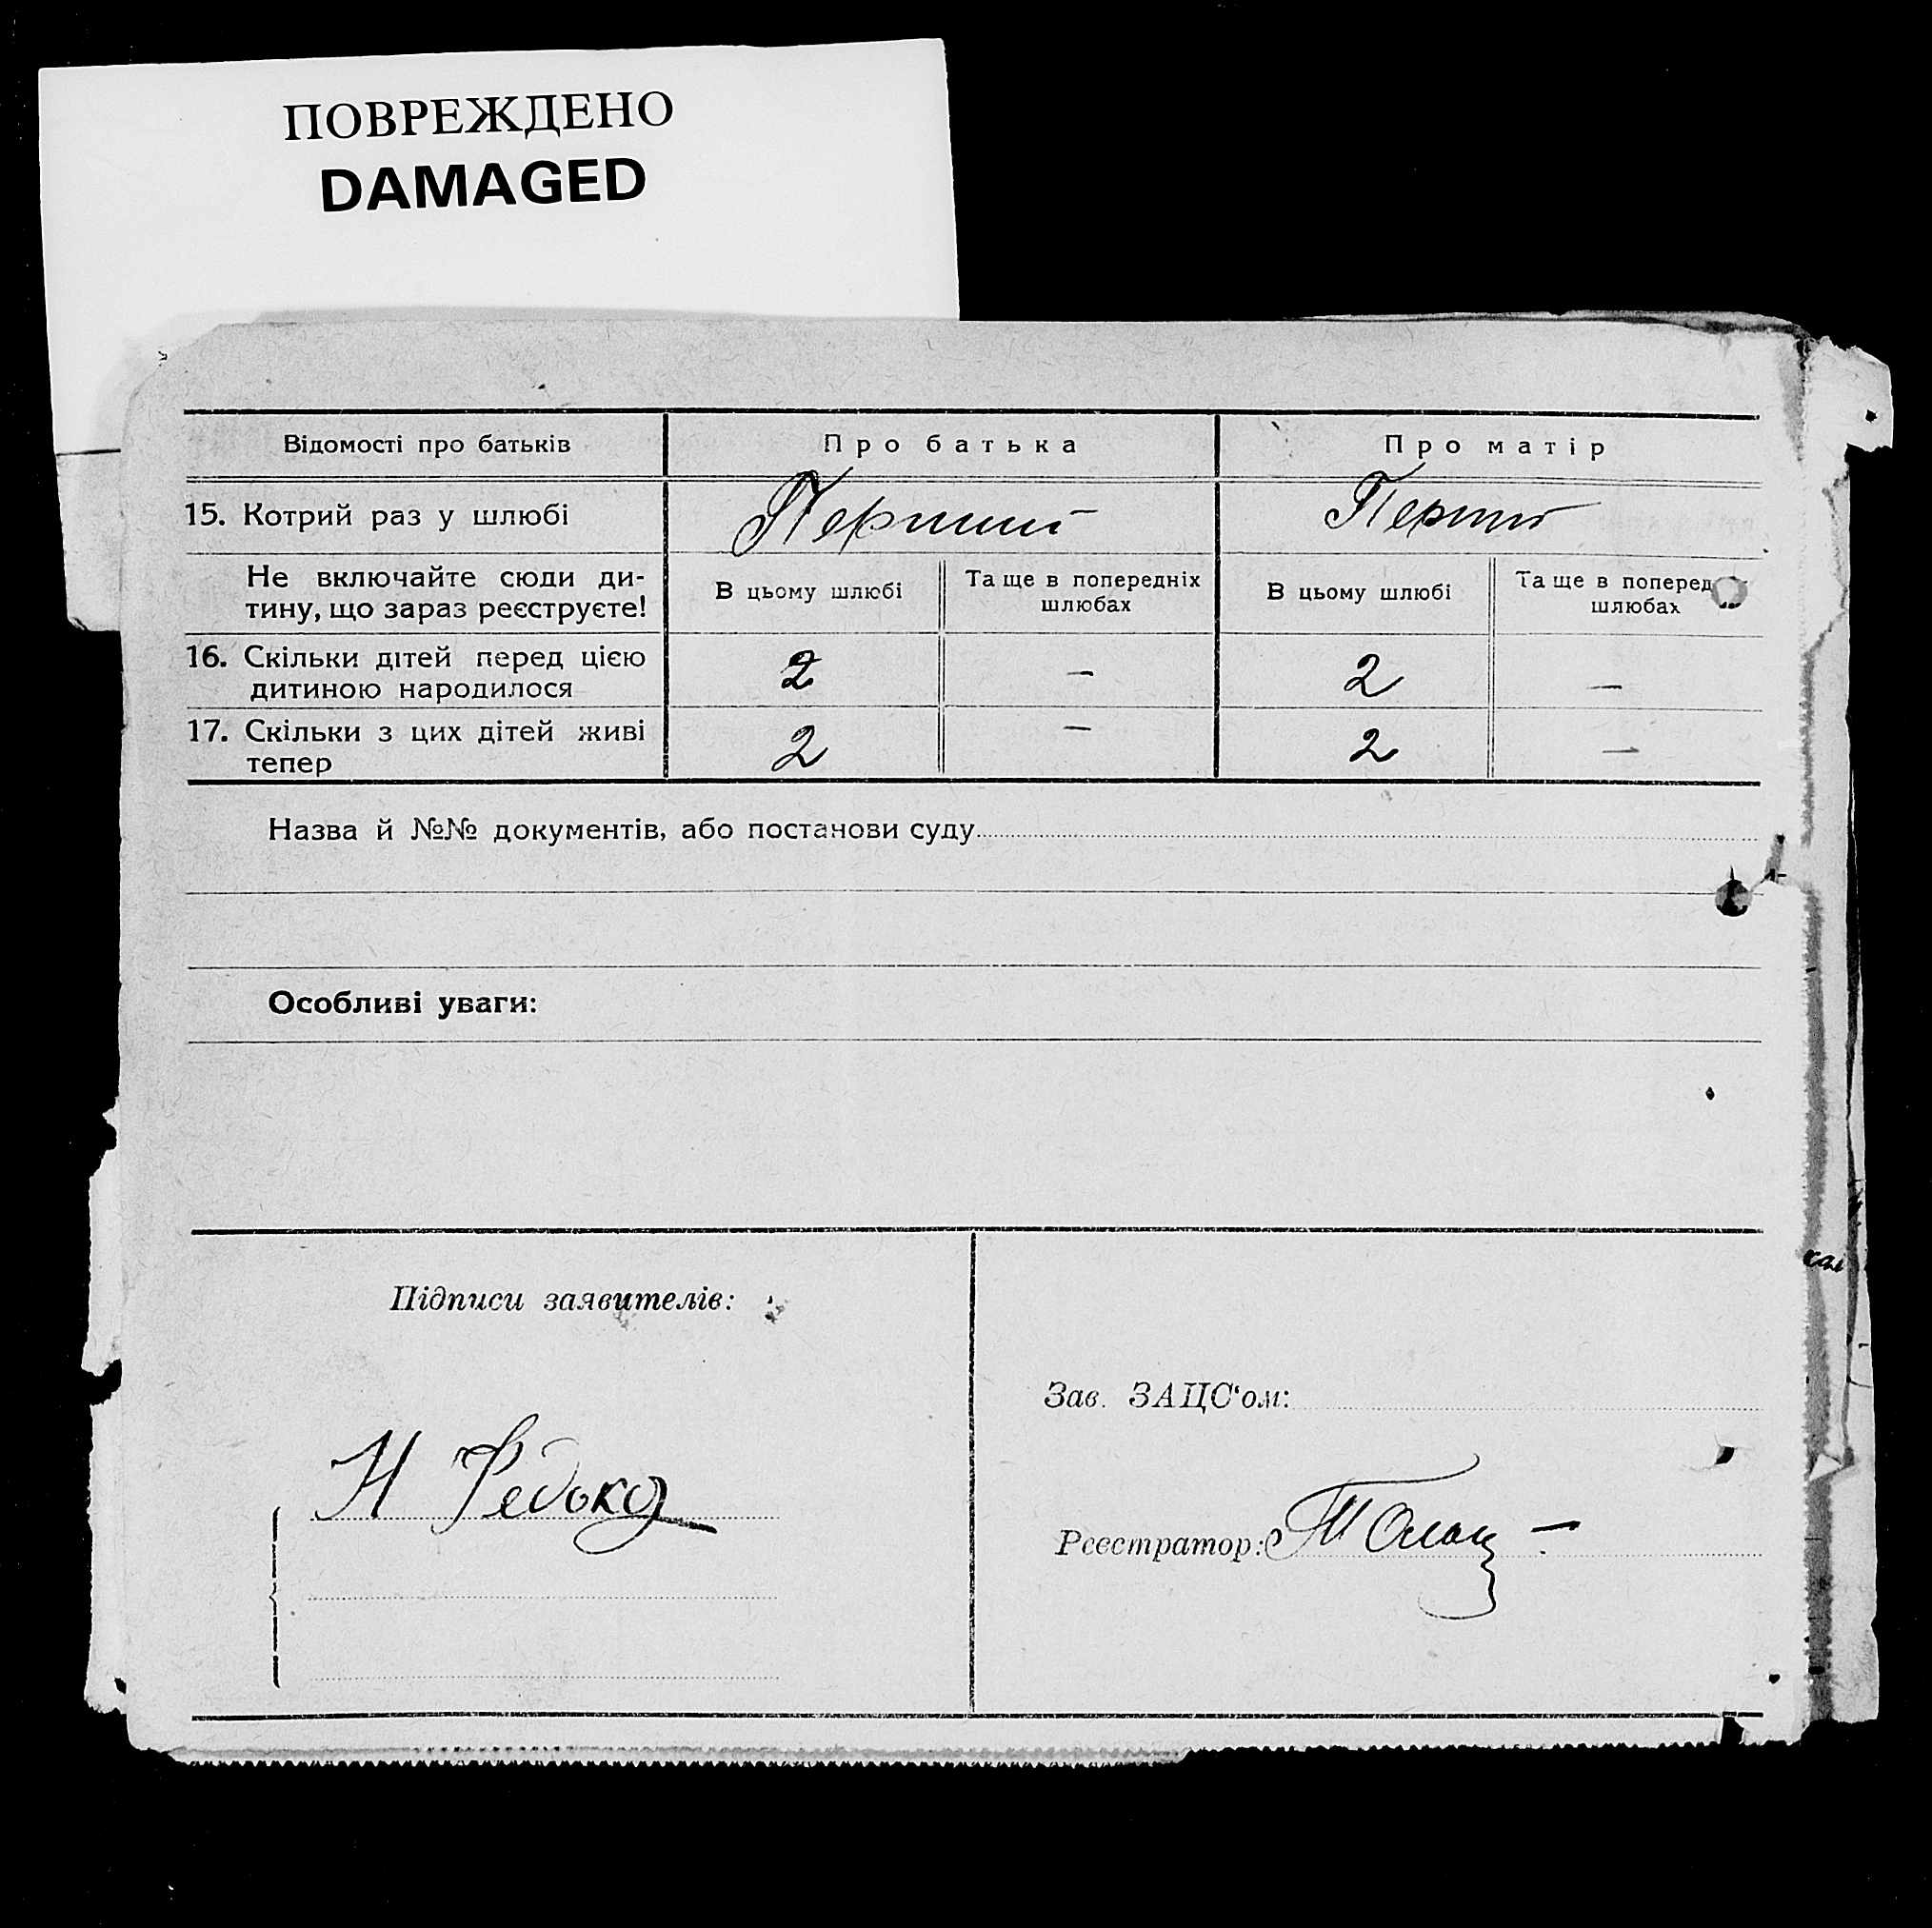 ПОВРЕЖДЕНО
DAMAGED
Відомості про батьків
Про батька
Про матір
15. Котрий раз у шлюбі
Перший
Перший
Не включайте сюди ди-
тину, що зараз реєструєте!
В цьому шлюбі
Та ще в попередніх
шлюбах
В цьому шлюбі
Та ще в поперед
шлюбах
16. Скільки дітей перед цією
дитиною народилося
2
–
2
–
17. Скільки з цих дітей живі
тепер
2
–
2
–
Назва й №№ документів, або постанови суду
Особливі уваги:
Підписи заявителів:
Зав. ЗАЦС‘ом:
Н Редько
Реєстратор: